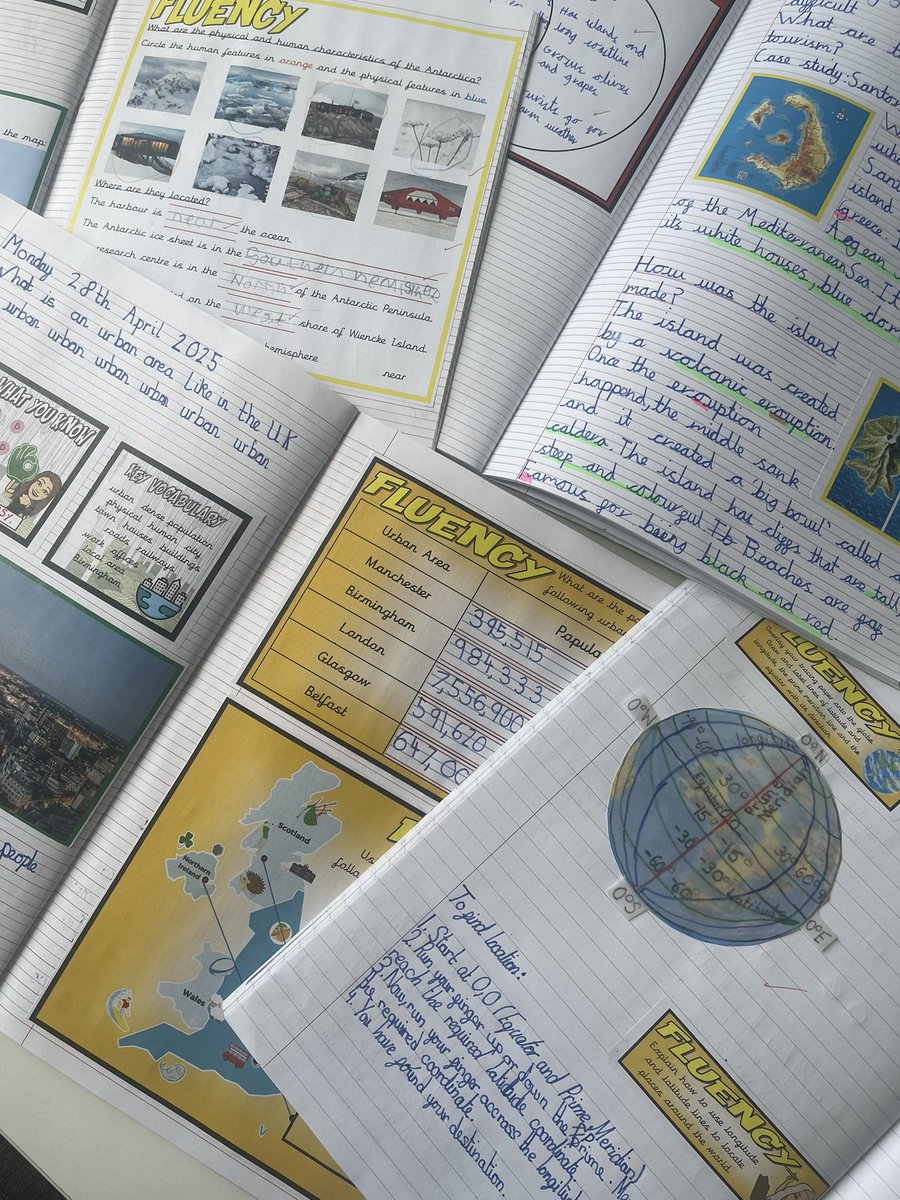 FLUENCY
What are the physical and human characteristics of the Antarctica?
Circle the human features in orange and the physical features in blue.
Where are they located?
The harbour is near the ocean.
The Antarctic ice sheet is in the Southern hemisphere
research centre is in the North of the Antarctic Peninsula.
on the west shore of Wiencke Island.
hemisphere
near
the map:
Has islands and
long coastline
Grows olives
and grapes
tourists go for
warm weather
difficult
What are
tourism?
Case study: Santor
Santo
island
greece.
Aegean
of the Mediterranean Sea. It
its white houses, blue dom
How was the island
made?
The island was created
by a volcanic eruption.
Once the eruption
happend, the middle sank
and it created a 'big bowl' called a
caldera. The island has cliggs that are tall
steep and colourgul. Its Beaches are gay
Famous gor being black and red.
Monday 28th April 2025
What is an urban area Like in the UK
urban urban urban urban urban urban
WHAT YOU KNOW
KEY VOCABULARY
urban dense population
physical human city
town houses buildings
roads railways
work offices
local area
Birmingham
people
FLUENCY
What are the po
following urban
Urban Area
Popula
Manchester
395,515
Birmingham
984,333
London
7,556,900
Glasgow
591,620
Belfast
Scotland
Northern
Ireland
Wales
Us
follo
FLUENCY
Overlay your tracing paper onto the globe.
Draw and label lines of latitude and
longitude, the prime meridian line and the
equator with its direction.
0°W
0°N
longitude
Equator
Prime
Meridian
-15°
-30°
-60°
30°
60°
latitude
0°S
0°E
To gind location:
1. Start at 0,0 (Equator and Prime Meridian)
2. Run your ginger up or down the prime Me
reach the required latitude coordinate.
3. Now, run your ginger accross the longit
the required coordinate.
4. You have gound your destination.
FLUENCY
Explain how to use longitude
and latitude lines to locate
places around the world.